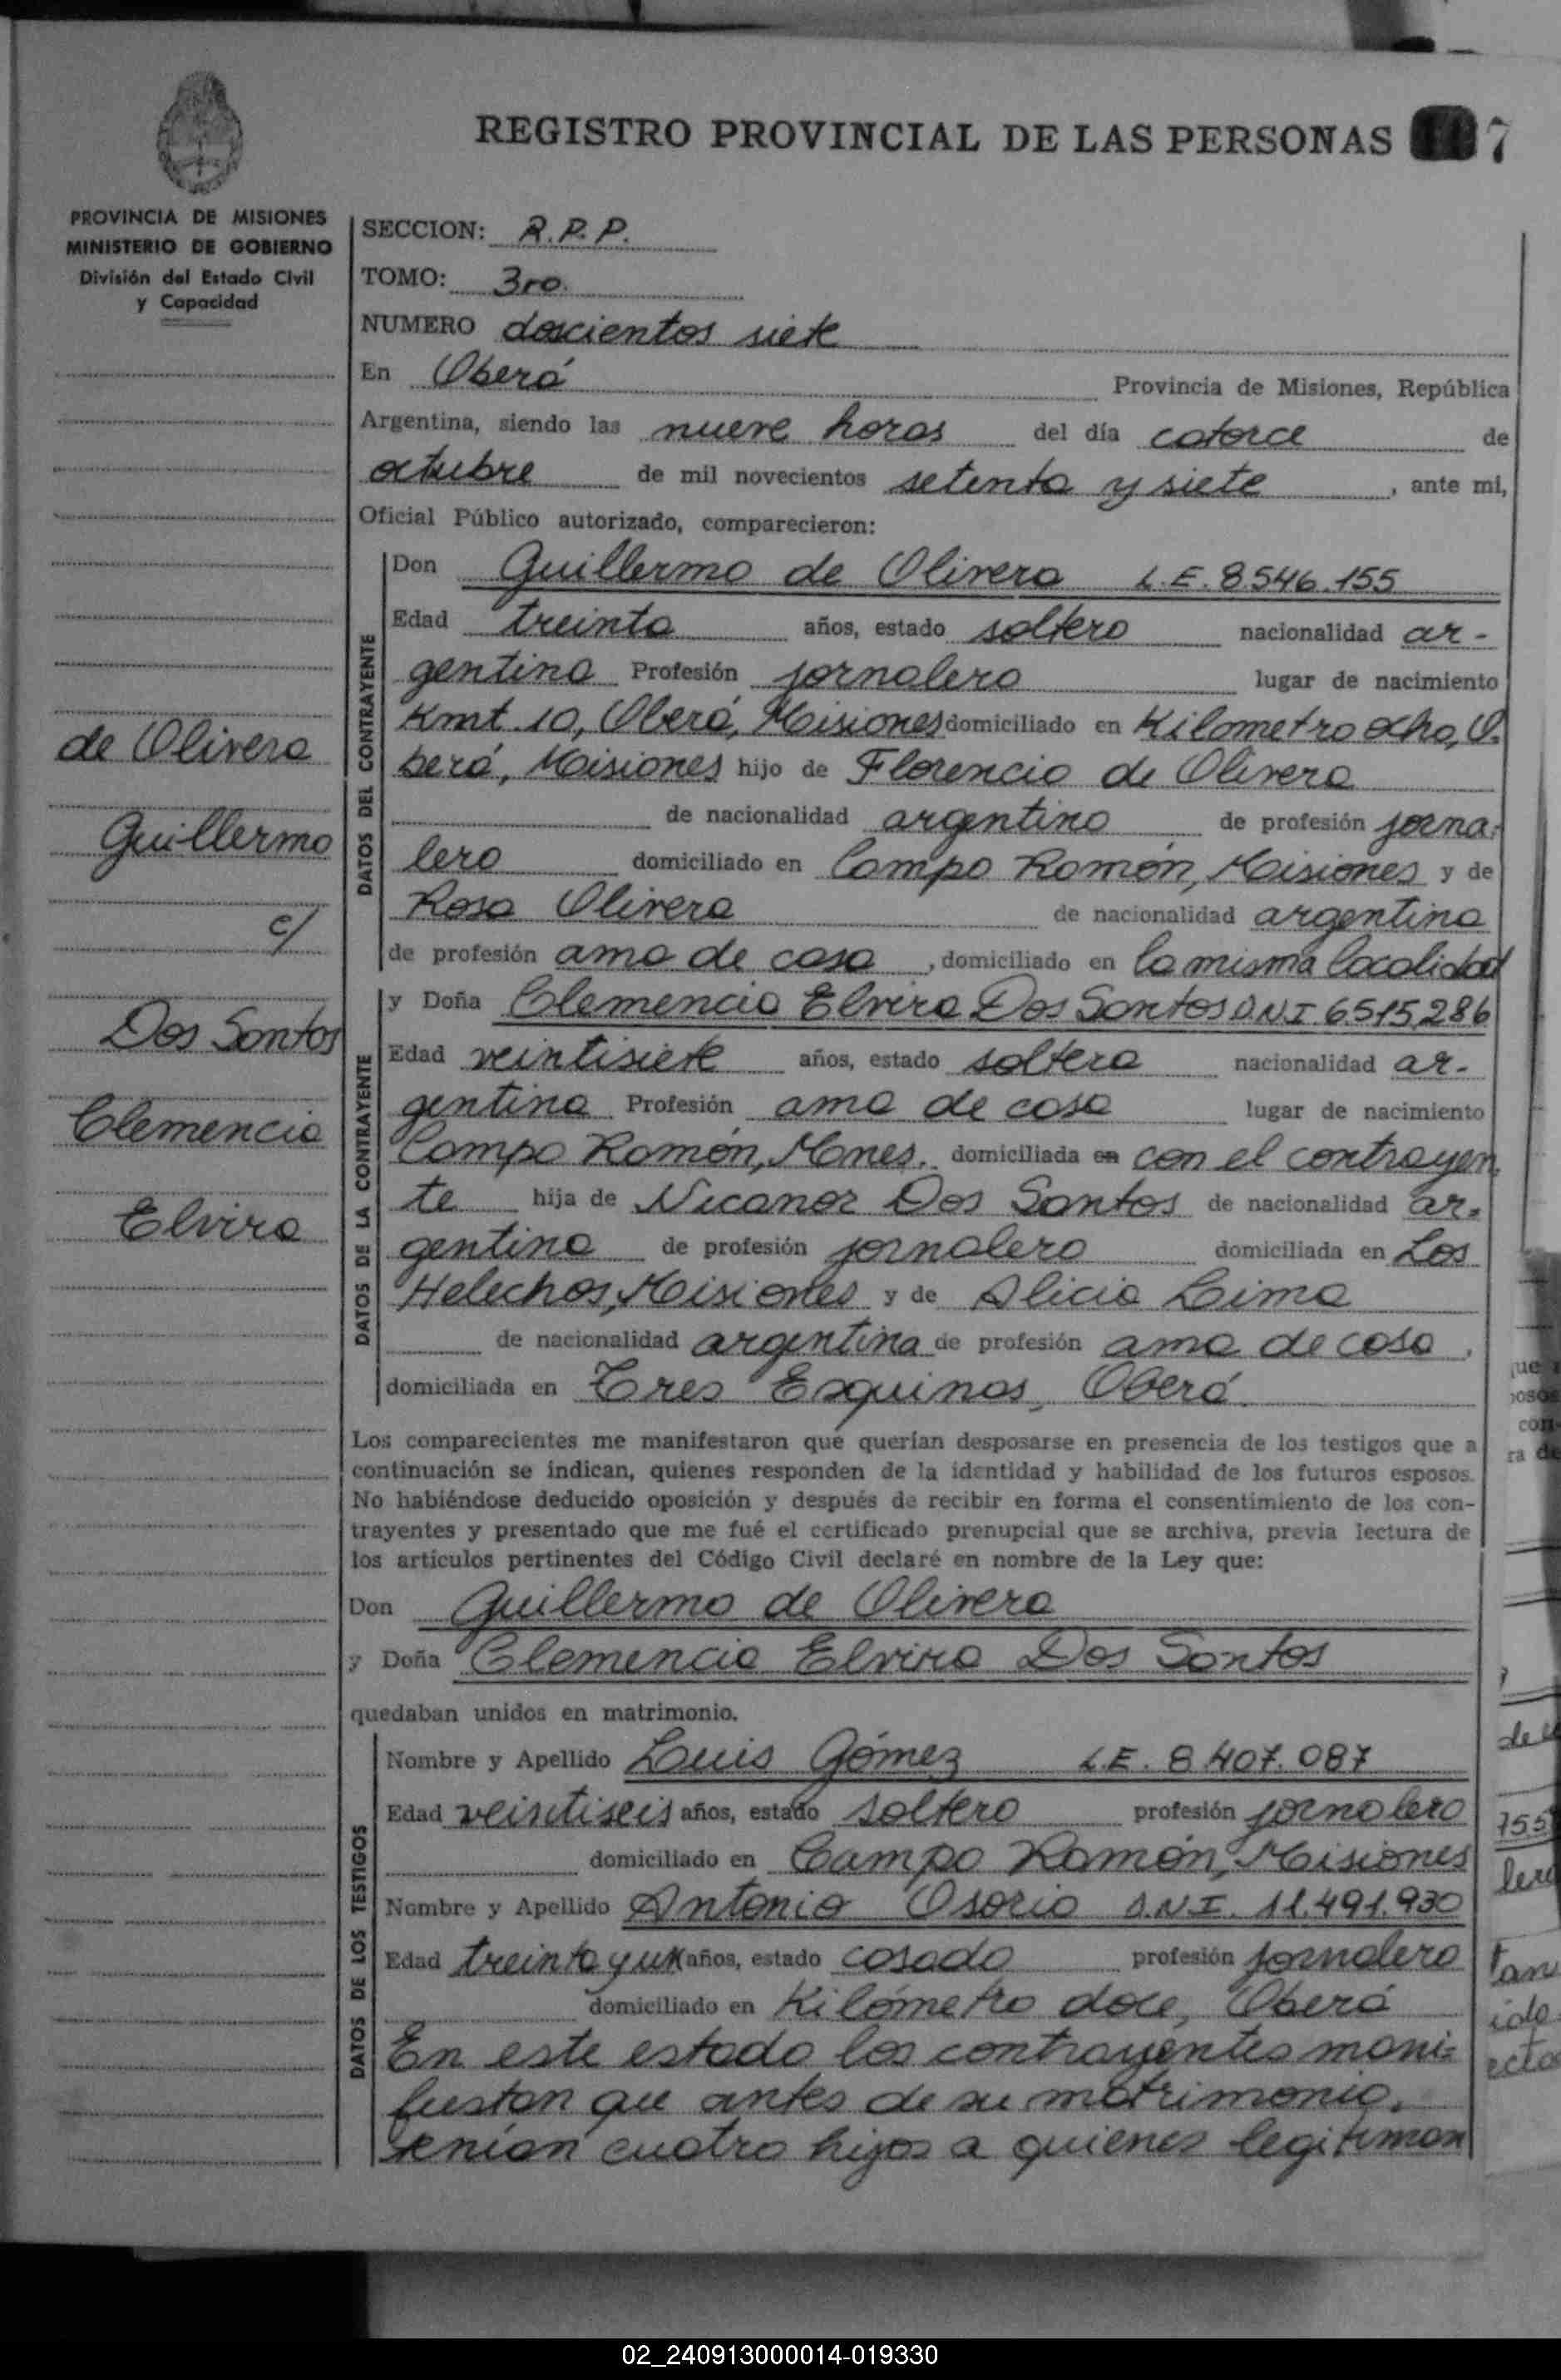 REGISTRO PROVINCIAL DE LAS PERSONAS 7
PROVINCIA DE MISIONES
MINISTERIO DE GOBIERNO
División del Estado Civil
y Capacidad
de Olivera
Guillermo
c/
Dos Santos
Clemencia
Elvira
SECCION: R.P.P.
TOMO: 3ro.
NUMERO doscientos siete
En Oberá Provincia de Misiones, República
Argentina, siendo las nueve horas del día catorce de
octubre de mil novecientos setenta y siete, ante mi,
Oficial Público autorizado, comparecieron:
DATOS DEL CONTRAYENTE
Don Guillermo de Olivera L.E. 8.546.155
Edad treinta años, estado soltero nacionalidad ar-
gentina Profesión jornalero lugar de nacimiento
Kmt. 10, Oberá, Misiones domiciliado en Kilometro ocho, O.
berá, Misiones hijo de Florencio de Olivera
de nacionalidad argentino de profesión jorna-
lero domiciliado en Campo Ramón, Misiones y de
Rosa Olivera de nacionalidad argentina
de profesión ama de casa, domiciliado en la misma localidad
DATOS DE LA CONTRAYENTE
y Doña Clemencia Elvira Dos Santos D.N.I 6.515.286
Edad veintisiete años, estado soltera nacionalidad ar-
gentina Profesión ama de casa lugar de nacimiento
Campo Ramón, Mnes. domiciliada en con el contrayen
te hija de Nicanor Dos Santos de nacionalidad ar-
gentina de profesión jornalero domiciliada en Los
Helechos, Misiones y de Alicia Lima
de nacionalidad argentina de profesión ama de casa,
domiciliada en Tres Esquinas, Oberá.
Los comparecientes me manifestaron que querían desposarse en presencia de los testigos que a
continuación se indican, quienes responden de la identidad y habilidad de los futuros esposos.
No habiéndose deducido oposición y después de recibir en forma el consentimiento de los con-
trayentes y presentado que me fué el certificado prenupcial que se archiva, previa lectura de
los artículos pertinentes del Código Civil declaré en nombre de la Ley que:
Don Guillermo de Olivera
y Doña Clemencia Elvira Dos Santos
quedaban unidos en matrimonio.
DATOS DE LOS TESTIGOS
Nombre y Apellido Luis Gómez L.E. 8.407.087
Edad veintiseis años, estado soltero profesión jornalero
domiciliado en Campo Ramón, Misiones
Nombre y Apellido Antonio Osorio D.N.I. 11.491.930
Edad treinta y un años, estado casado profesión jornalero
domiciliado en Kilómetro doce, Oberá
En este estado los contrayentes mani-
fiestan que antes de su matrimonio.
tenían cuatro hijos a quienes legitiman
02_240913000014-019330